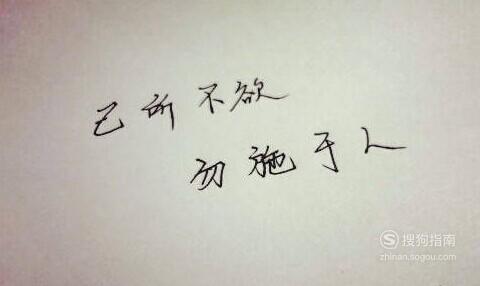 己所不欲
勿施于人
搜狗指南
zhinan.sogou.com